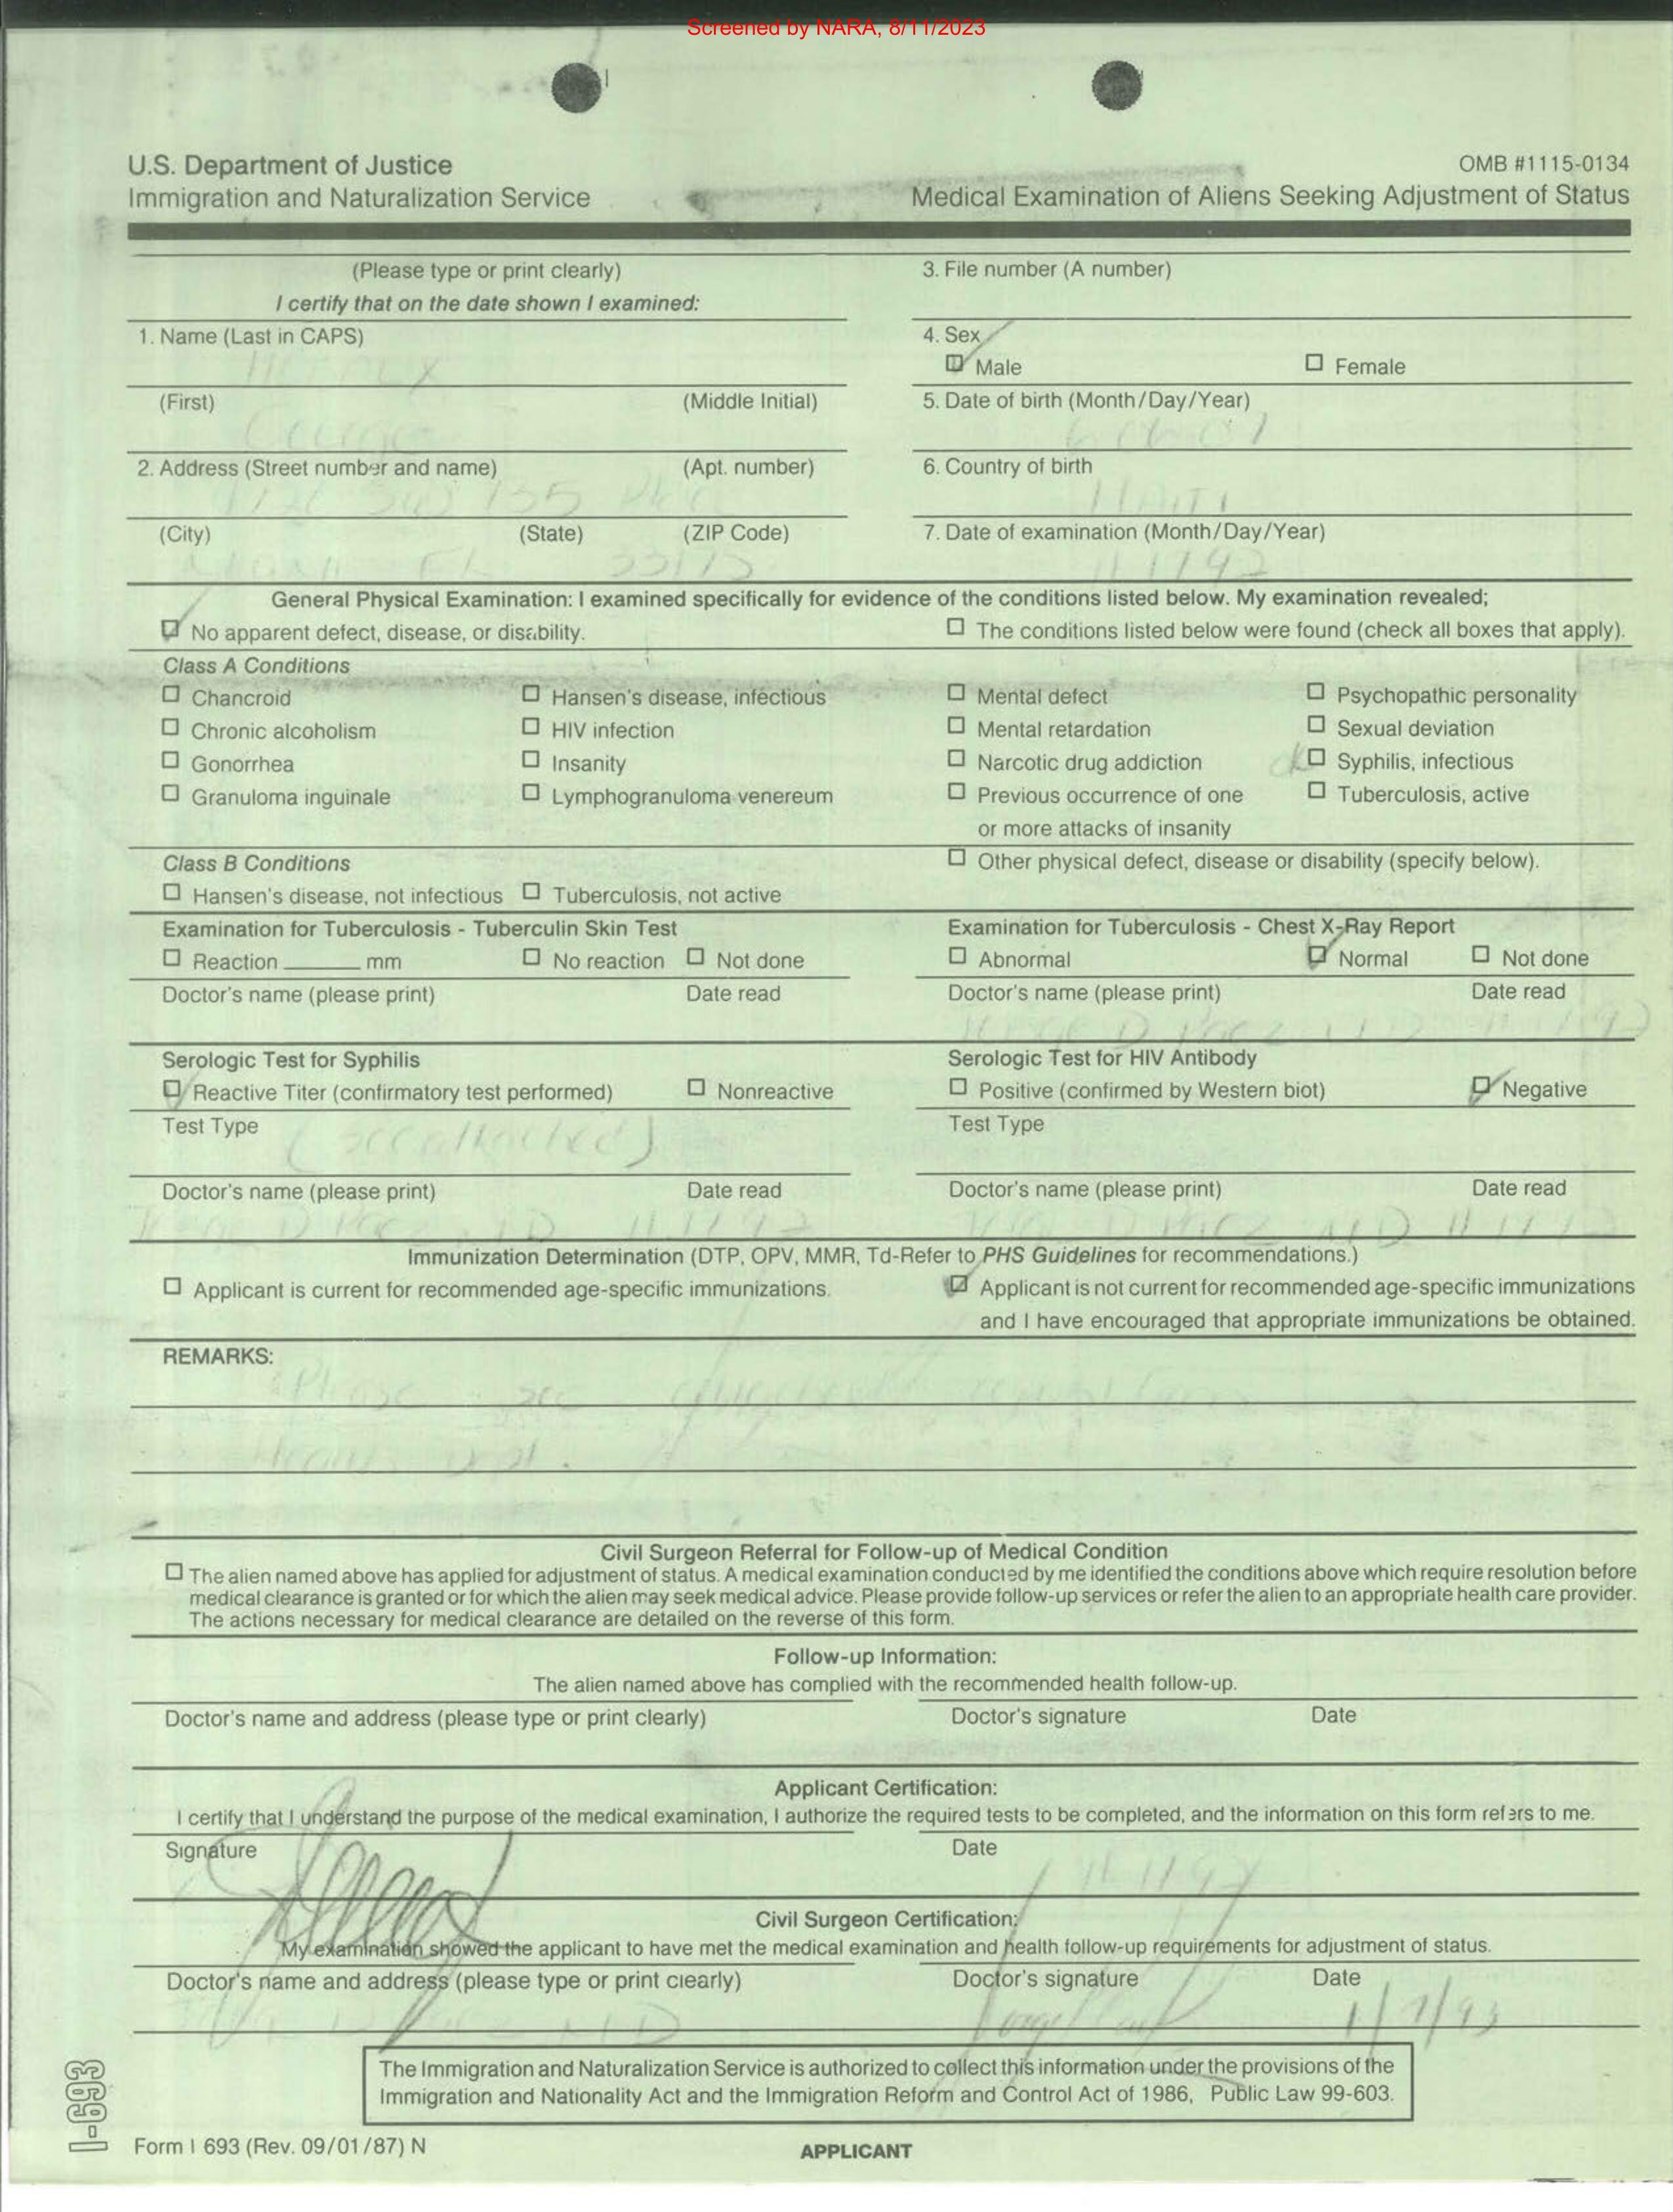 Screened by NARA, 8/11/2023
U.S. Department of Justice
Immigration and Naturalization Service
OMB #1115-0134
Medical Examination of Aliens Seeking Adjustment of Status
(Please type or print clearly)
I certify that on the date shown I examined:
3. File number (A number)
1. Name (Last in CAPS)
4. Sex
Male
Female
(First) (Middle Initial)
5. Date of birth (Month/Day/Year)
2. Address (Street number and name) (Apt. number)
135
6. Country of birth
HAITI
(City) (State) (ZIP Code)
7. Date of examination (Month/Day/Year)
General Physical Examination: I examined specifically for evidence of the conditions listed below. My examination revealed;
No apparent defect, disease, or disability.
The conditions listed below were found (check all boxes that apply).
Class A Conditions
Chancroid Hansen's disease, infectious Mental defect Psychopathic personality
Chronic alcoholism HIV infection Mental retardation Sexual deviation
Gonorrhea Insanity Narcotic drug addiction Syphilis, infectious
Granuloma inguinale Lymphogranuloma venereum Previous occurrence of one Tuberculosis, active
or more attacks of insanity
Class B Conditions
Other physical defect, disease or disability (specify below).
Hansen's disease, not infectious Tuberculosis, not active
Examination for Tuberculosis - Tuberculin Skin Test
Examination for Tuberculosis - Chest X-Ray Report
Reaction ______ mm No reaction Not done
Abnormal Normal Not done
Doctor's name (please print) Date read
Doctor's name (please print) Date read
Serologic Test for Syphilis
Serologic Test for HIV Antibody
Reactive Titer (confirmatory test performed) Nonreactive
Positive (confirmed by Western biot) Negative
Test Type
(see attached)
Test Type
Doctor's name (please print) Date read
Doctor's name (please print) Date read
Immunization Determination (DTP, OPV, MMR, Td-Refer to PHS Guidelines for recommendations.)
Applicant is current for recommended age-specific immunizations.
Applicant is not current for recommended age-specific immunizations
and I have encouraged that appropriate immunizations be obtained.
REMARKS:
Please see
Civil Surgeon Referral for Follow-up of Medical Condition
The alien named above has applied for adjustment of status. A medical examination conducted by me identified the conditions above which require resolution before
medical clearance is granted or for which the alien may seek medical advice. Please provide follow-up services or refer the alien to an appropriate health care provider.
The actions necessary for medical clearance are detailed on the reverse of this form.
Follow-up Information:
The alien named above has complied with the recommended health follow-up.
Doctor's name and address (please type or print clearly) Doctor's signature Date
Applicant Certification:
I certify that I understand the purpose of the medical examination, I authorize the required tests to be completed, and the information on this form refers to me.
Signature Date
Civil Surgeon Certification:
My examination showed the applicant to have met the medical examination and health follow-up requirements for adjustment of status.
Doctor's name and address (please type or print clearly) Doctor's signature Date
The Immigration and Naturalization Service is authorized to collect this information under the provisions of the
Immigration and Nationality Act and the Immigration Reform and Control Act of 1986, Public Law 99-603.
I-693
Form I 693 (Rev. 09/01/87) N
APPLICANT